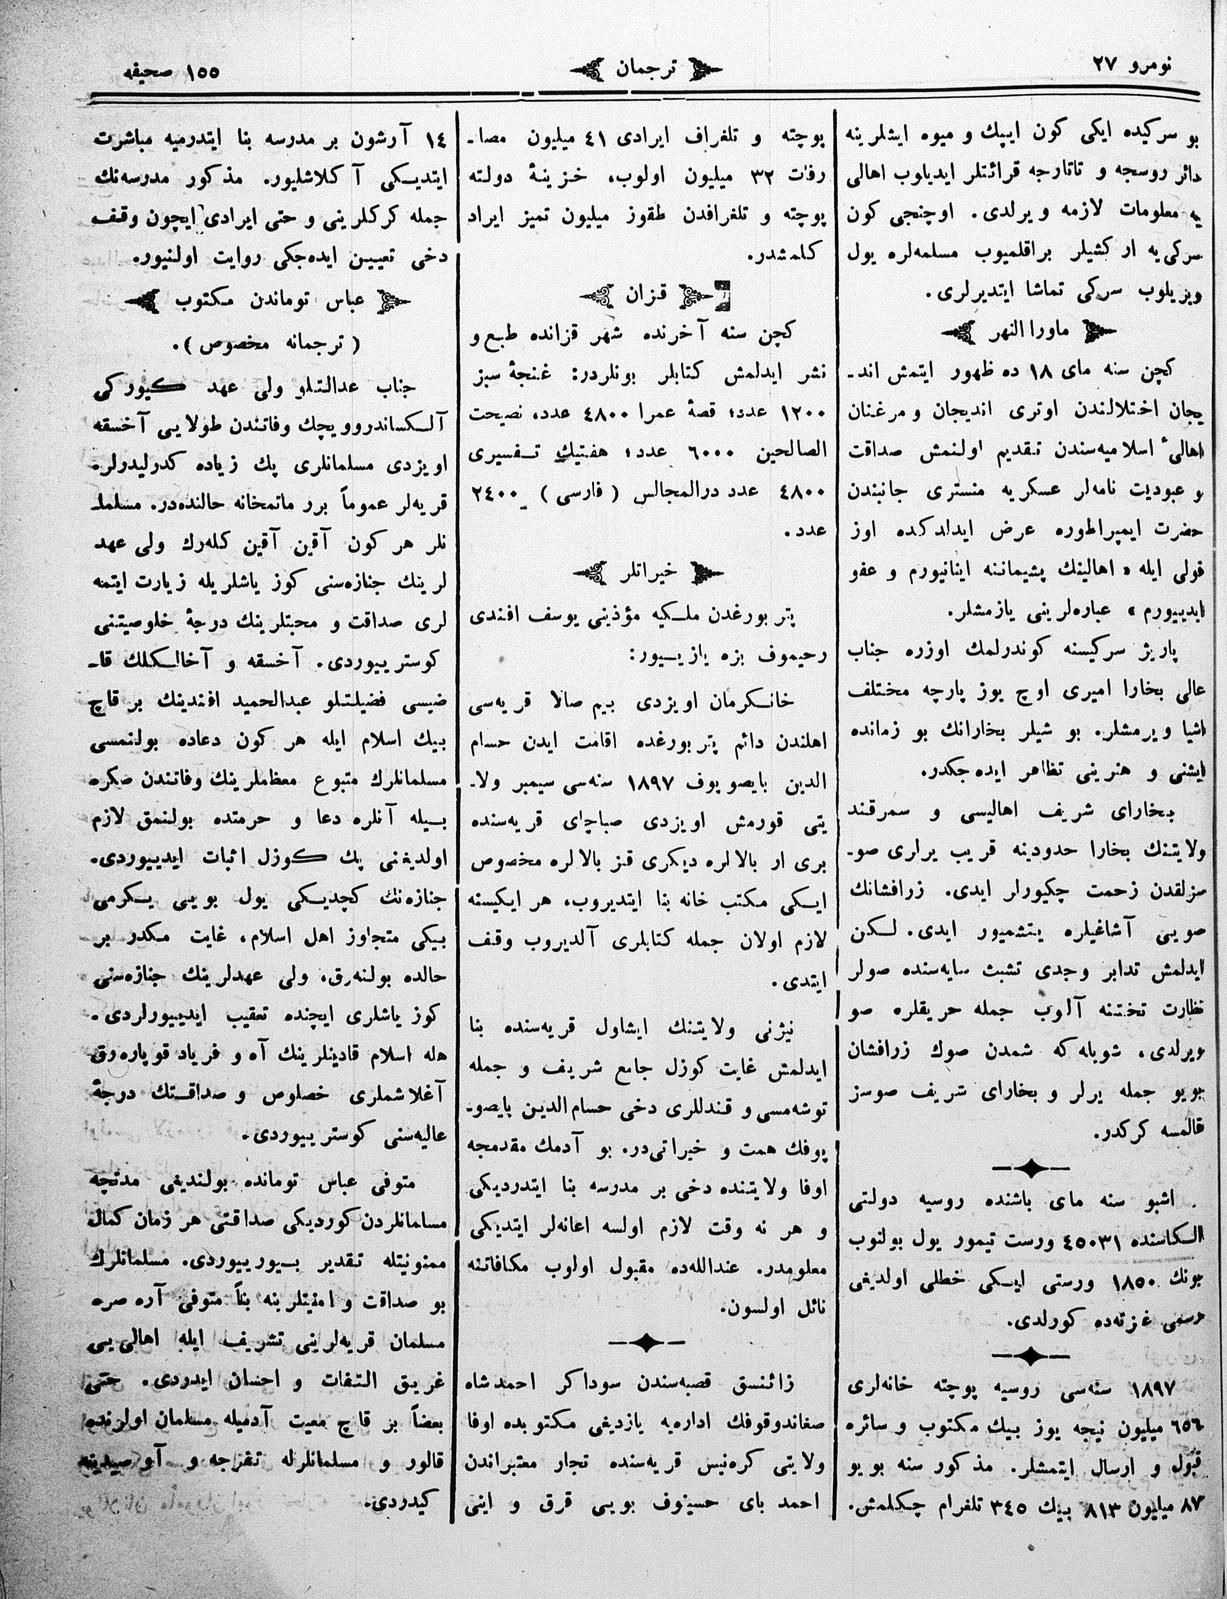 نومرو ٢٧
ترجمان
١٥٥ صحيفه
بو سركيده ايكی كون ايپك و ميوه ايشلرينه
دائر روسجه و تاتارجه قرائتلر ايديلوب اهالی
يه معلومات لازمه ويرلدی. اوچنجی كون
سركی‌يه ار كشيلر براقلميوب مسلمه‌لره يول
ويريلوب سركی تماشا ايتديرلری.
ماورا النهر
كچن سنه مای ١٨ ده ظهور ايتمش اند-
يجان اختلالندن اوتری انديجان و مرغنان
اهالیٔ اسلاميه‌سندن تقديم اولنمش صداقت
و عبوديت نامه‌لر عسكريه منستری جانبندن
حضرت ايمپراطوره عرض ايدلدكده اوز
قولی ايله « اهالينك پشيماننه اينانيورم و عفو
ايدييورم » عباره‌لرينی يازمشلر.
پاريژ سركيسنه كوندرلمك اوزره جناب
عالی بخارا اميری اوچ يوز پارچه مختلف
اشيا ويرمشلر. بو شيلر بخارانك بو زمانده
ايشنی و هنرينی تظاهر ايده جكدر.
بخارای شريف اهاليسی و سمرقند
ولايتنك بخارا حدودينه قريب يرلری صو-
سزلقدن زحمت چكيورلر ايدی. زرافشانك
صويی آشاغيلره يتشميور ايدی. لكن
ايدلمش تدابر وجدی تشبث سايه‌سنده صولر
نظارت تختنه آلوب جمله حريقلره صو
ويرلدی، شويله كه شمدن صوك زرافشان
بويو جمله يرلر و بخارای شريف صوسز
قالمسه كركدر.
اشبو سنه مای باشنده روسيه دولتی
الكاسنده ٤٥٠٣١ ورست تيمور يول بولنوب
بونك ١٨٥٠ ورستی ايكی خطلی اولديغی
رسمی غزته‌ده كورلدی.
١٨٩٧ سنه‌سی روسيه پوچته خانه‌لری
٦٥٦ ميليون نيجه يوز بيك مكتوب و سائره
قبول و ارسال ايتمشلر. مذكور سنه بويو
٨٧ ميليون ٨١٣ بيك ٣٤٥ تلغرام چكلمش.
پوچته و تلغراف ايرادی ٤١ ميليون مصا-
رفات ٣٢ ميليون اولوب، خزينهٔ دولته
پوچته و تلغرافدن طقوز ميليون تميز ايراد
كلمشدر.
قزان
كچن سنه آخرنده شهر قزانده طبع و
نشر ايدلمش كتابلر بونلردر: غنجهٔ سبز
١٢٠٠ عدد؛ قصهٔ عمرا ٤٨٠٠ عدد، نصيحت
الصالحين ٦٠٠٠ عدد؛ هفتيك تفسيری
٤٨٠٠ عدد درالمجالس ( فارسی ) ٢٤٠٠
عدد.
خيراتلر
پتربورغدن ملكيه مؤذينی يوسف افندی
رحيموف بزه يازييور:
خانكرمان اويزدی بيم صالا قريه‌سی
اهلندن دائم پتربورغده اقامت ايدن حسام
الدين بايصويوف ١٨٩٧ سنه‌سی سيمبر ولا-
يتی قورمش اويزدی صباچای قريه‌سنده
بری ار بالالره ديكری قز بالالره مخصوص
ايكی مكتب خانه بنا ايتديروب، هر ايكيسنه
لازم اولان جمله كتابلری آلديروب وقف
ايتدی.
نيژنی ولايتنك ايشاول قريه‌سنده بنا
ايدلمش غايت كوزل جامع شريف و جمله
توشه‌مسی و قندللری دخی حسام‌الدين بايصو-
يوفك همت و خيراتی‌در. بو آدمك مقدمجه
اوفا ولايتنده دخی بر مدرسه بنا ايتدرديكی
و هر نه وقت لازم اولسه اعانه‌لر ايتديكی
معلومدر. عندالله‌ده مقبول اولوب مكافاتنه
نائل اولسون.
زائنسق قصبه‌سندن سوداكر احمدشاه
صفاندوقوفك اداره‌يه يازديغی مكتوبده اوفا
ولايتی كره‌نيس قريه‌سنده تجار معتبراندن
احمد بای حسينوف بويی قرق و اينی
١٤ آرشون بر مدرسه بنا ايتدرميه مباشرت
ايتديكی آكلاشليور. مذكور مدرسه‌نك
جمله كركلرينی و حتی ايرادی ايچون وقف
دخی تعيين ايده‌جكی روايت اولنيور.
عباس توماندن مكتوب
( ترجمانه مخصوص ).
جناب عدالتلو ولی عهد كيوركی
آلكساندروويچك وفاتندن طولايی آخسقه
اويزدی مسلمانلری پك زياده كدرليدرلر.
قريه‌لر عموماً برر ماتمخانه حالنده‌در. مسلما-
نلر هر كون آقين آقين كله‌رك ولی عهد
لرينك جنازه‌سنی كوز ياشلريله زيارت ايتمه
لری صداقت و محبتلرينك درجهٔ خلوصيتنی
كوسترييوردی. آخسقه و آخالكلك قا-
ضيسی فضيلتلو عبدالحميد افندينك برقاچ
بيك اسلام ايله هر كون دعاده بولنمسی
مسلمانلرك متبوع معظملرينك وفاتندن صكره
بيله آنلره دعا و حرمتده بولنمق لازم
اولديغنی پك كوزل اثبات ايدييوردی.
جنازه‌نك كچديكی يول بويی يكرمی
بيكی متجاوز اهل اسلام، غايت مكدر بر
حالده بولنه‌رق، ولی عهدلرينك جنازه‌سنی
كوز ياشلری ايچنده تعقيب ايدييورلردی.
هله اسلام قادينلرينك آه و فرياد قوپاره‌رق
آغلاشملری خصلوص و صداقتك درجهٔ
عاليه‌سنی كوسترييوردی.
متوفی عباس تومانده بولنديغی مدتچه
مسلمانلردن كورديكی صداقتی هر زمان كمال
ممنونيتله تقدير بيورييوردی. مسلمانلرك
بو صداقت و امنيتلرينه بناً متوفی آره صره
مسلمان قريه‌لرينی تشريف ايله اهالی‌يی
غريق التفات و احسان ايدردی. حتی
بعضاً بر قاچ معيت آدميله مسلمان اولرنده
قالور و مسلمانلرله تفرجه و آو صيدينه
كيدردی.